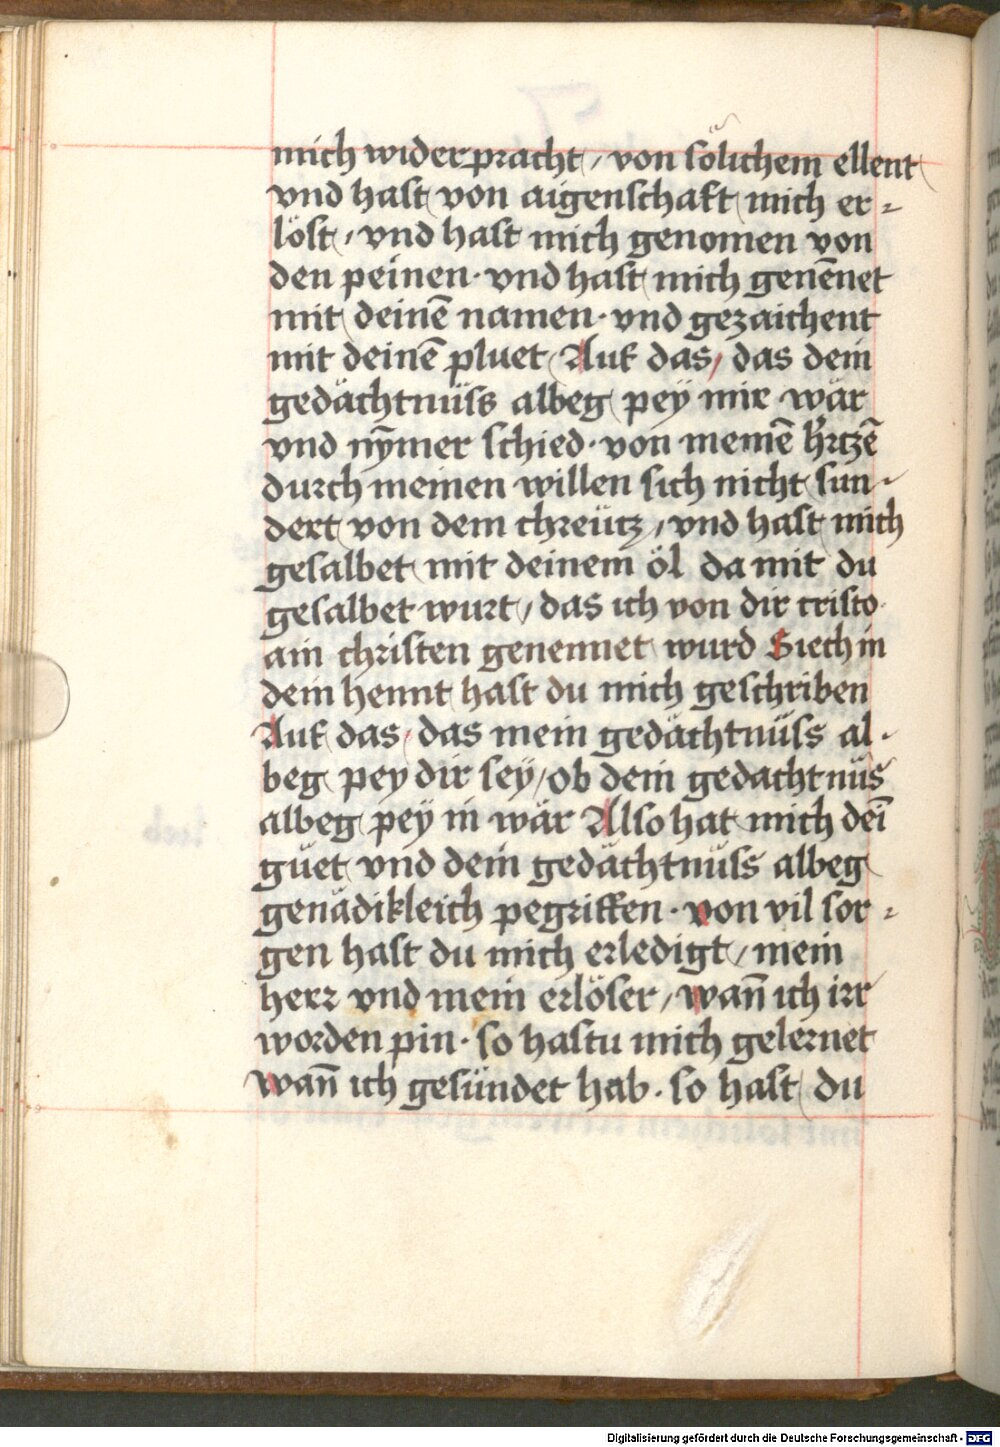 mich widerpracht / von sölichem ellent
vnd hast von aigenschaft mich er⸗
löst / vnd hast mich genomen von
den peinen · vnd hast mich genēnet
mit deinē namen · vnd gezaichent
mit deinē pluet Auf das / das dein
gedächtnüss albeg pey mir wär
vnd nȳmer schied · von meinē hʼrtzē
durch meinen willen sich nicht sun⸗
dert von dem chreütz / vnd hast mich
gesalbet mit deinem öl da mit du
gesalbet wurt / das ich von dir cristo
ain christen genennet wurd Siech in
dein hennt hast du mich geschriben
Auf das / das mein gedächtnüss al⸗
beg pey dir sey / ob dein gedachtnüs
albeg pey in wär Also hat mich deī
güet vnd dein gedächtnüss albeg
genädikleich pegriffen · von vil sor⸗
gen hast du mich erledigt / mein
herr vnd mein erlöser / wan̄ ich irr
worden pin · so hastu mich gelernet
wan̄ ich gesündet hab · so hast du
Digitalisierung gefördert durch die Deutsche Forschungsgemeinschaft - DFG